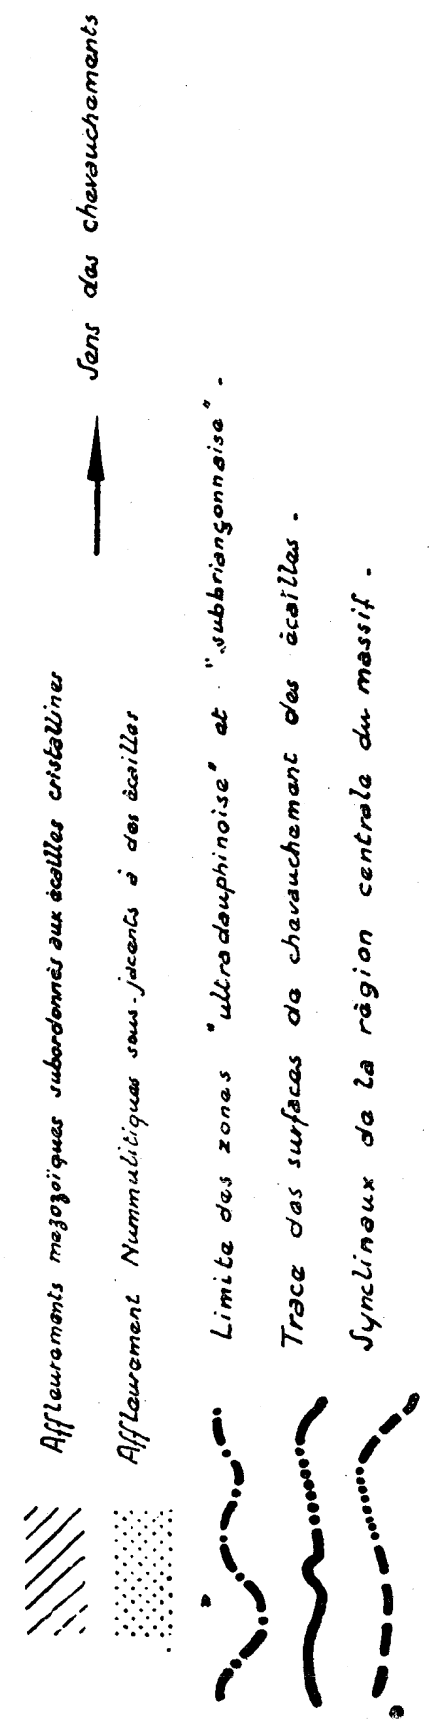 Affleurements mezozoïques subordonnés aux écailles cristallines
Sens des chevauchements
Affleurement Nummulitiques sous-jacents à des écailles
Limite des zones "ultradauphinoise" et "subbriançonnaise".
Trace des surfaces de chevauchement des écailles.
Synclinaux de la région centrale du massif.